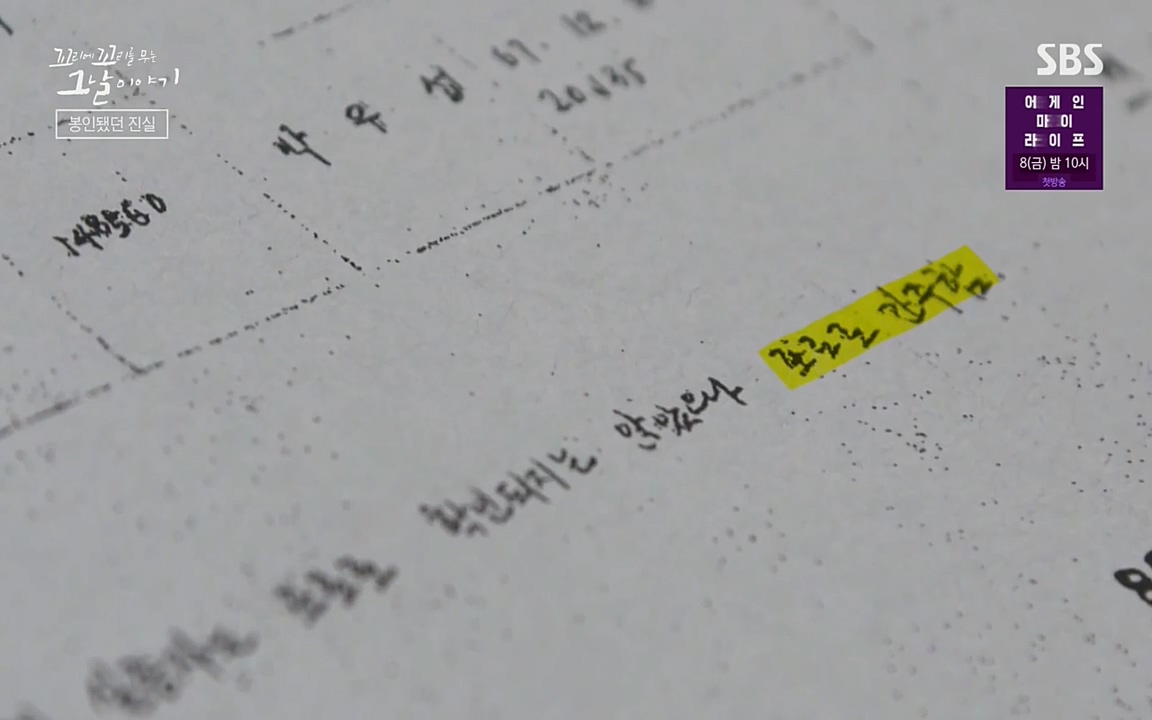 꼬리에 꼬리를 무는
그날 이야기
봉인됐던 진실
SBS
어게인
마이
라이프
8(금) 밤 10시
첫방송
67. 12.
148560
포로로 확인되지는 않았으나 포로로 간주함.